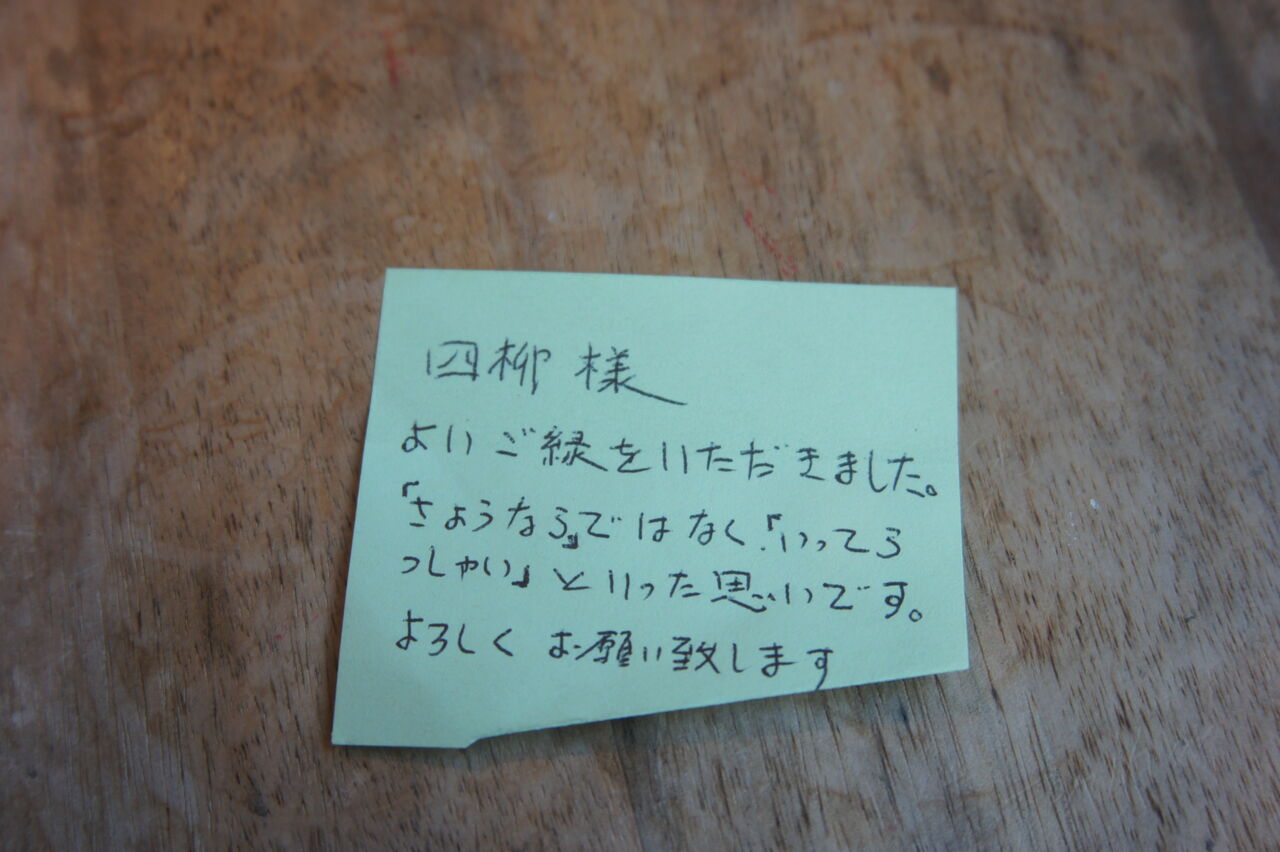 四柳 様
よいご縁をいただきました。
「さようなら」ではなく、「いってら
っしゃい」といった思いです。
よろしくお願い致します